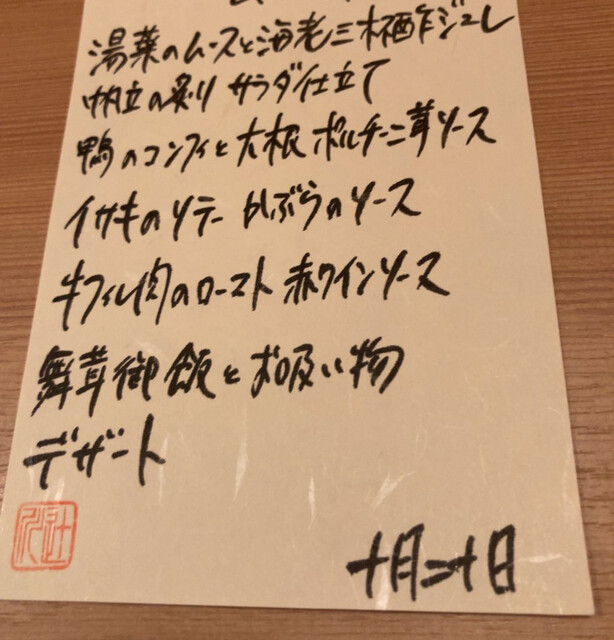 湯葉のムースと海老三杯酢ジュレ
帆立の炙り サラダ仕立て
鴨のコンフィと大根 ポルチーニ茸ソース
イサキのソテー かぶらのソース
牛フィレ肉のロースト 赤ワインソース
舞茸御飯とお吸い物
デザート
十月二十日